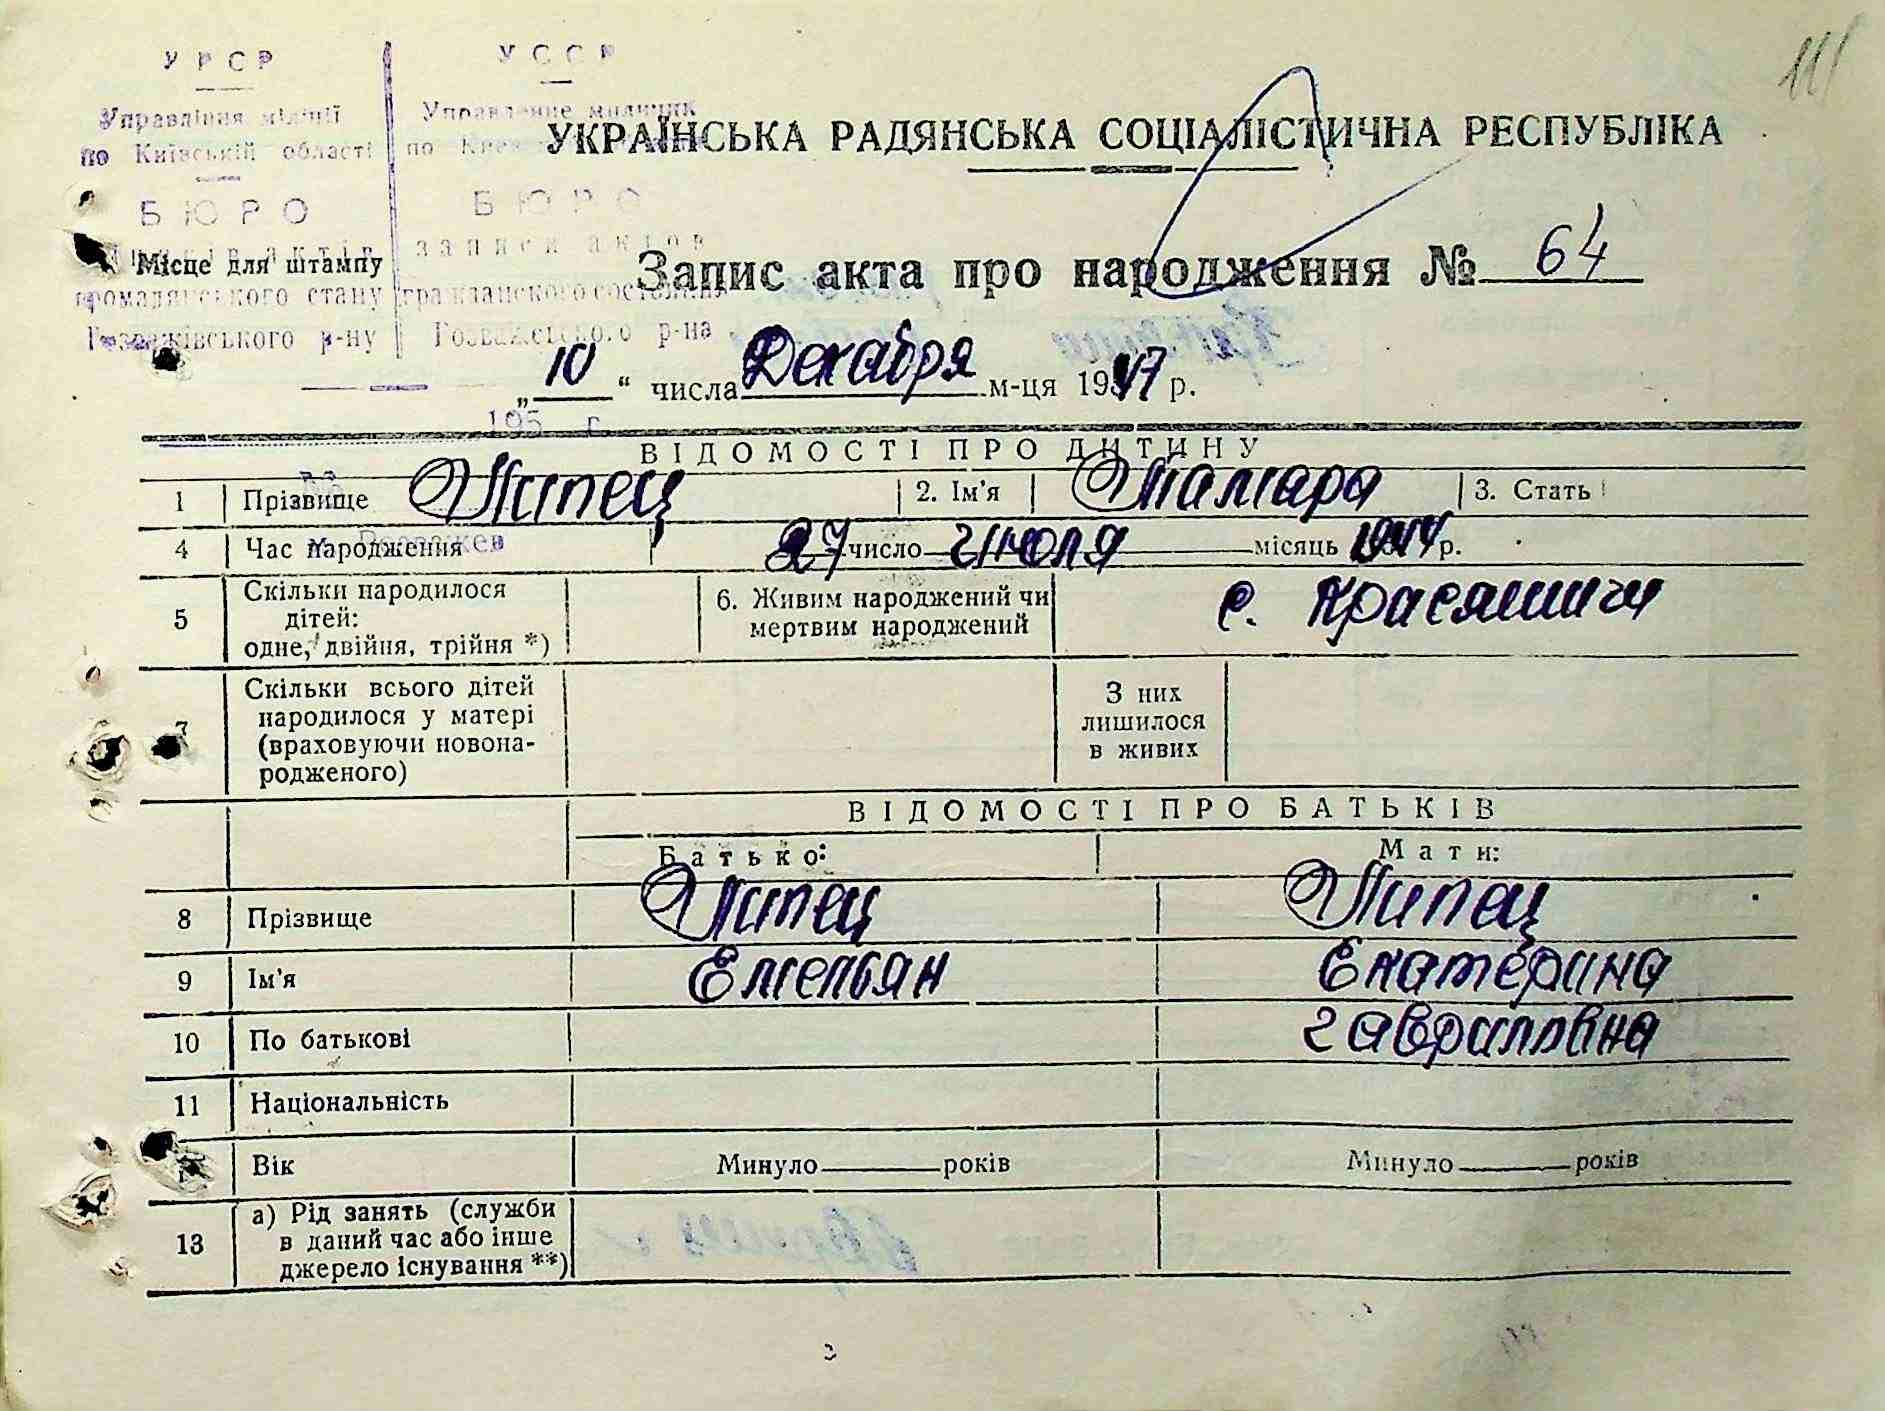 111
УРСР
Управління міліції
по Київській області
БЮРО
громадянського стану
Розважівського р-ну
УССР
Управление милиции
по
БЮРО
записи актов
гражданского состояния
Розважевского р-на
195 г.
Місце для штампу
УКРАЇНСЬКА РАДЯНСЬКА СОЦІАЛІСТИЧНА РЕСПУБЛІКА
Запис акта про народження № 64
„10“ числа Декабря м-ця 1947 р.
ВІДОМОСТІ ПРО ДИТИНУ
1 Прізвище Липец 2. Ім'я Тамара 3. Стать
4 Час народження 27 число Июля місяць 1944 р.
5 Скільки народилося
дітей:
одне, двійня, трійня *)
6. Живим народжений чи
мертвим народжений
с. Красятичи
7 Скільки всього дітей
народилося у матері
(враховуючи новона-
родженого)
З них
лишилося
в живих
ВІДОМОСТІ ПРО БАТЬКІВ
Батько: Мати:
8 Прізвище Липец Липец
9 Ім'я Емельян Екатерина
10 По батькові Гавриловна
11 Національність
Вік Минуло років Минуло років
13 а) Рід занять (служби
в даний час або інше
джерело існування **)